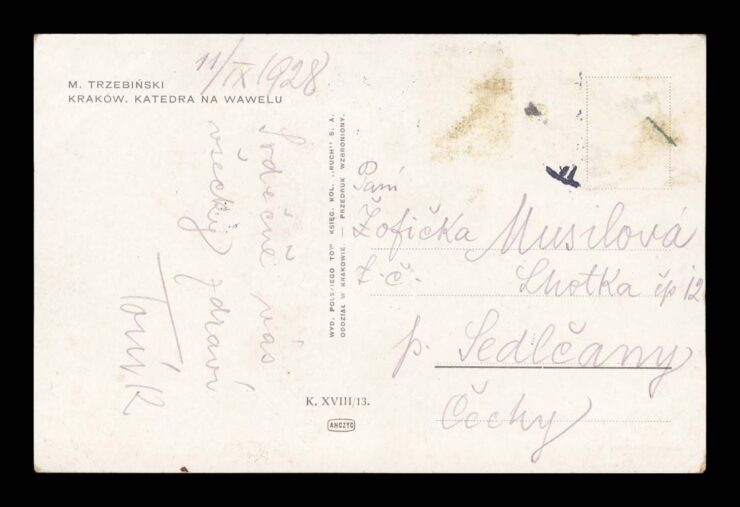 M. TRZEBIŃSKI
KRAKÓW. KATEDRA NA WAWELU
11/IX 1928
Srdečně vás
všecky zdraví
Toník
WYD. POLSKIEGO TOW. KSIĘG. KOL. „RUCH" S. A.
ODDZIAŁ W KRAKOWIE. — PRZEDRUK WZBRONIONY.
K. XVIII/13.
ANCZYC
Paní
Žofička Musilová
Lhotka čp 12
p. Sedlčany
Čechy